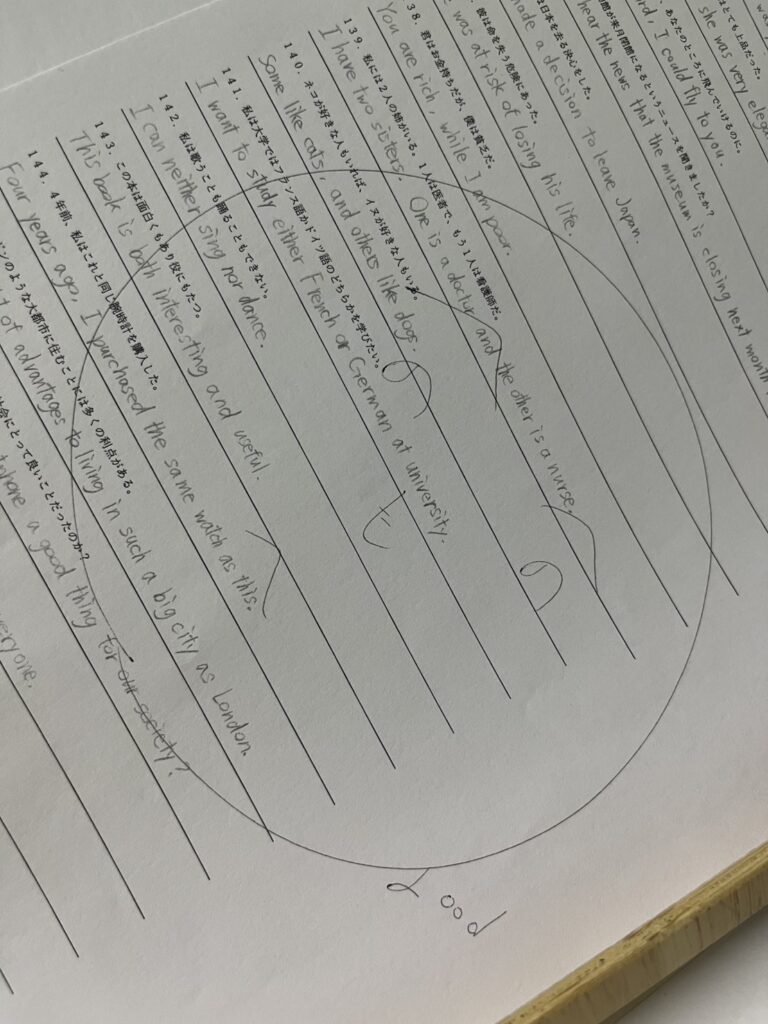 she was very
はとても上品だった。
、あなたのところに飛んでいけるのに。
I could fly to you.
館が来月閉館になるというニュースを聞きましたか?
hear the news that the museum is closing next month
は日本を去る決心をした。
made a decision to leave Japan.
彼は命を失う危険にあった。
was at risk of losing his life.
38. 君はお金持ちだが、僕は貧乏だ。
You are rich, while I am poor.
139. 私には2人の姉がいる。1人は医者で、もう1人は看護師だ。
I have two sisters. One is a doctor, and the other is a nurse.
140. ネコが好きな人もいれば、イヌが好きな人もいる。
Some like cats, and others like dogs.
141. 私は大学ではフランス語かドイツ語のどちらかを学びたい。
I want to study either French or German at university.
142. 私は歌うことも踊ることもできない。
I can neither sing nor dance.
143. この本は面白くもあり役にもたつ。
This book is both interesting and useful.
144. 4年前、私はこれと同じ腕時計を購入した。
Four years ago, I purchased the same watch as this.
ドンのような大都市に住むことには多くの利点がある。
of advantages to living in such a big city as London.
社会にとって良いことだったのか?
a good thing for our society?
everyone.